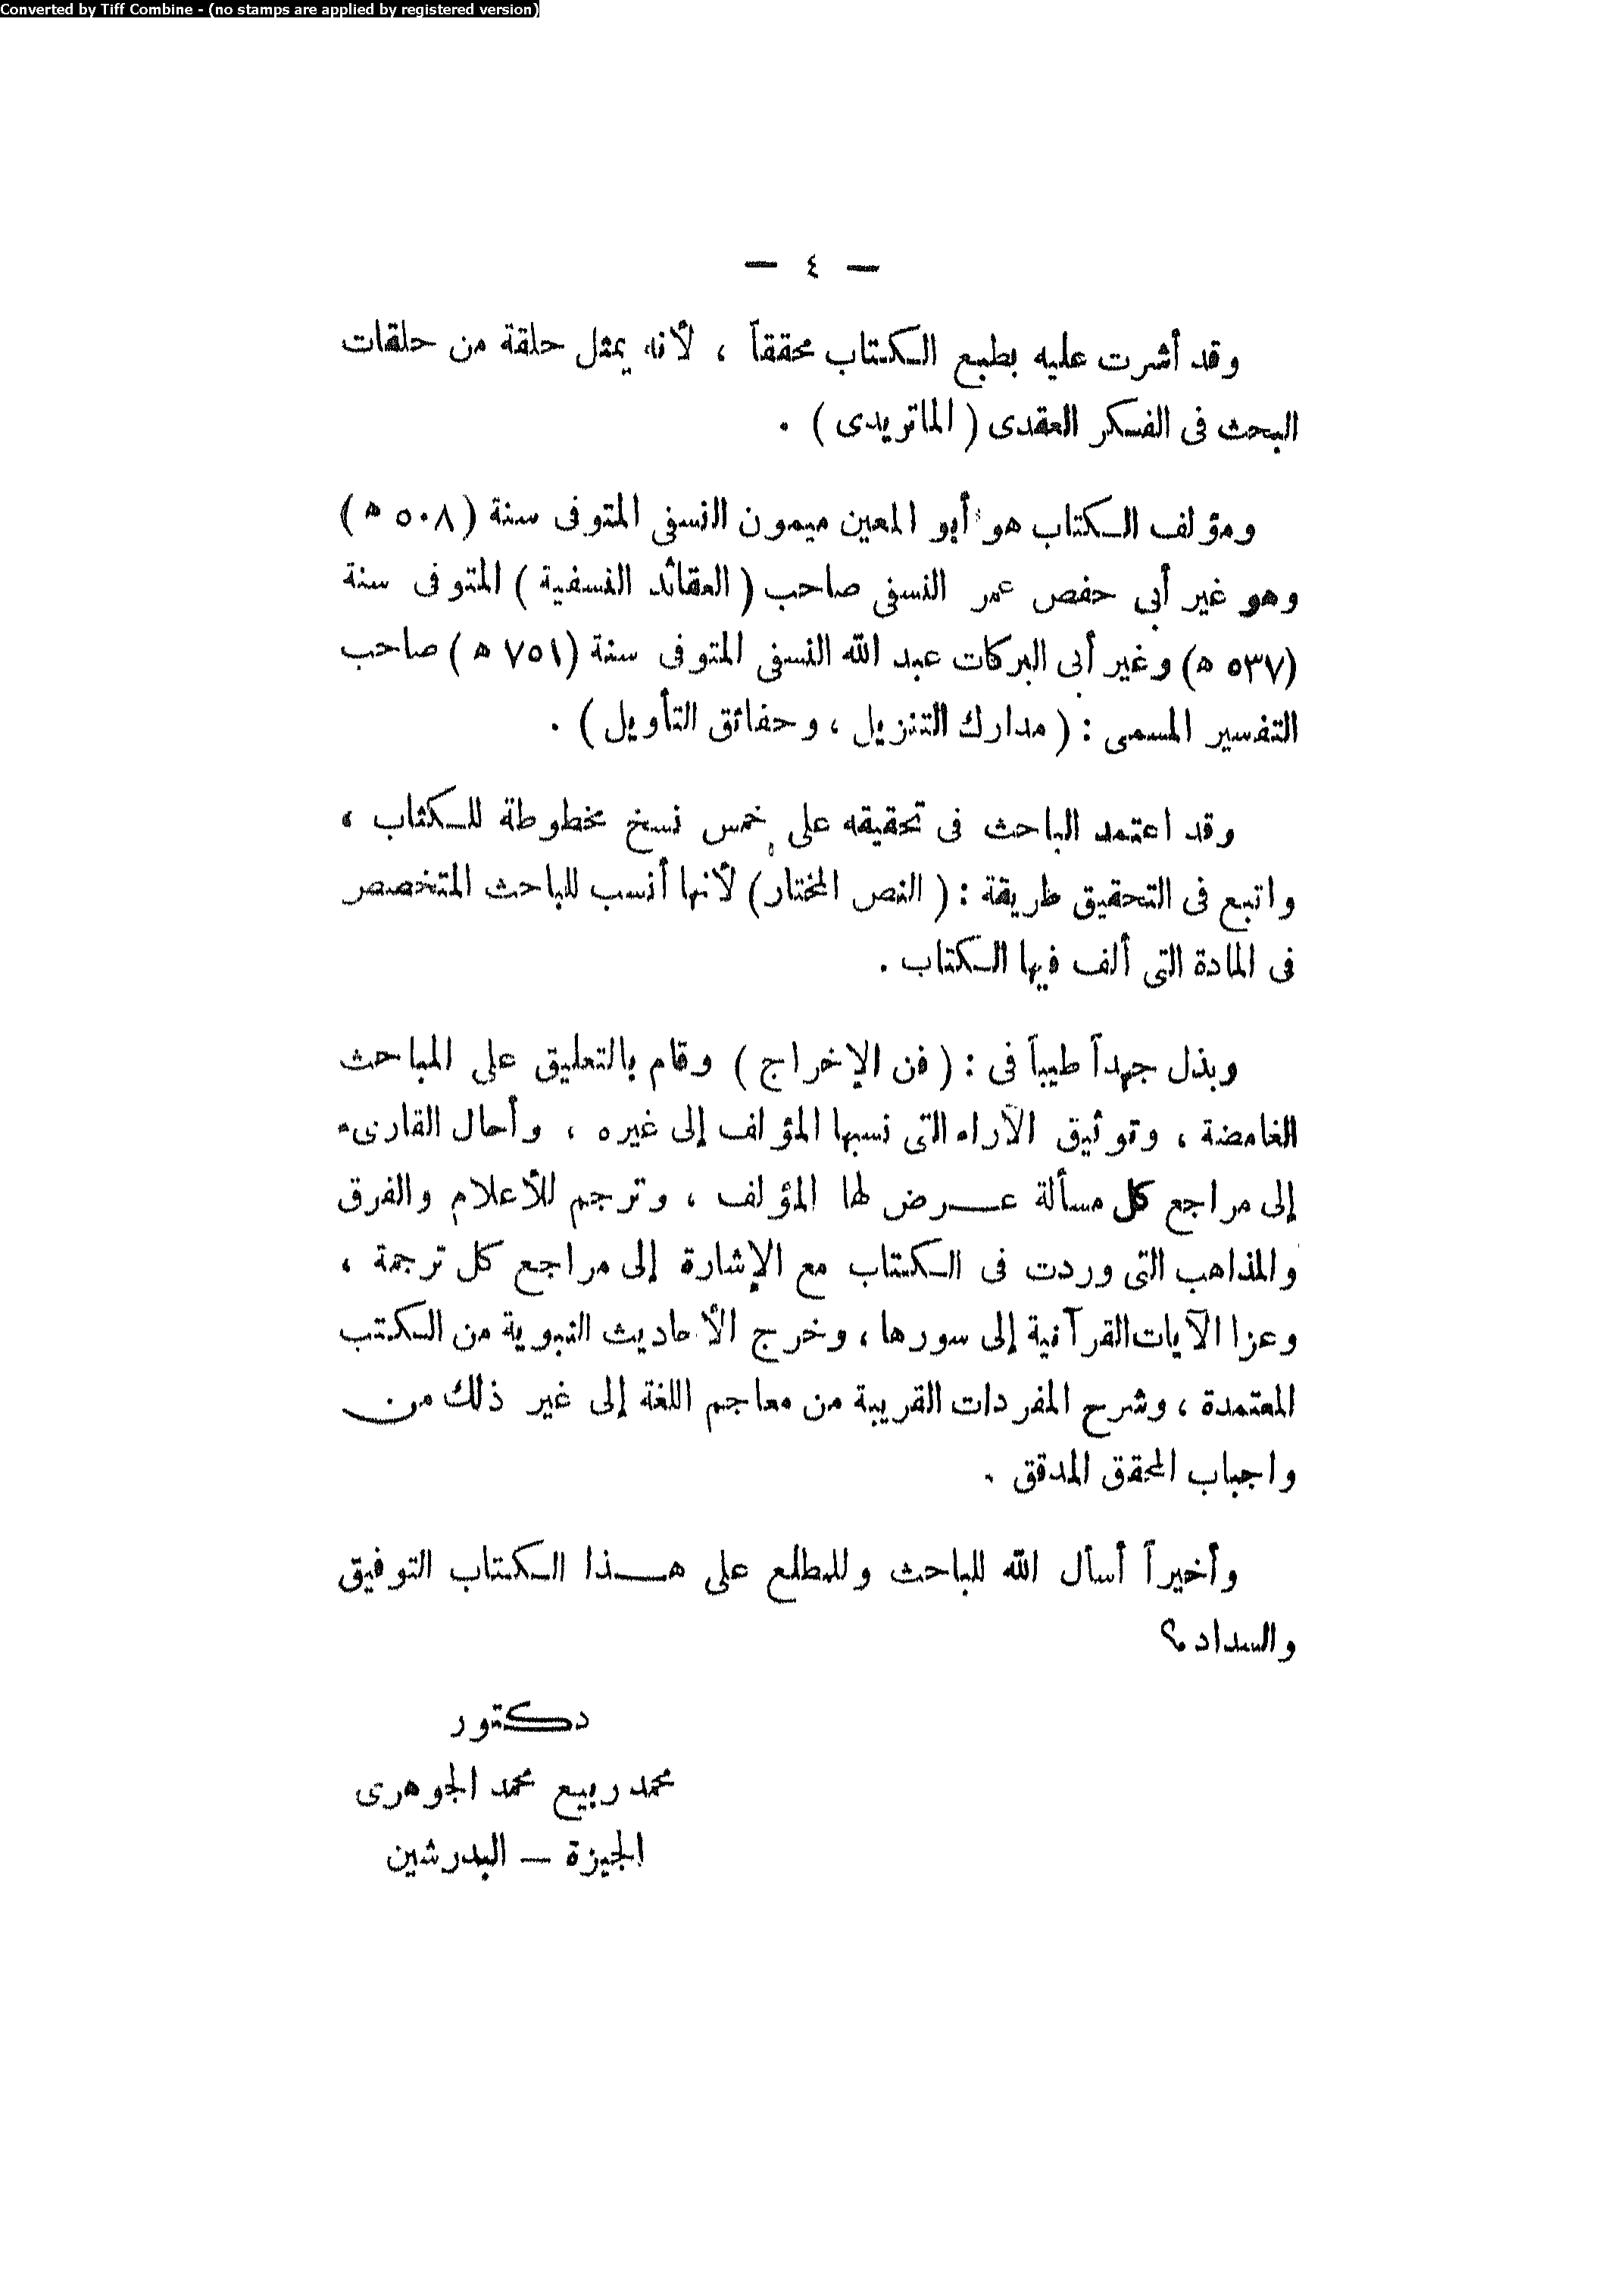 Converted by Tiff Combine - (no stamps are applied by registered version)
— ٤ —
وقد أشرت عليه بطبع الكتاب محققاً ، لأنه يمثل حلقة من حلقات
البحث فى الفكر العقدى ( الماتريدى ) .
ومؤلف الكتاب هو أبو المعين ميمون النسفى المتوفى سنة ( ٥٠٨ ه )
وهو غير أبى حفص عمر النسفى صاحب ( العقائد النسفية ) المتوفى سنة
(٥٣٧ ه) وغير أبى البركات عبد الله النسفى المتوفى سنة (٧٥١ ه ) صاحب
التفسير المسمى : ( مدارك التنزيل ، وحفائق التأويل ) .
وقد اعتمد الباحث فى تحقيقه على خمس نسخ مخطوطة للكتاب ،
واتبع فى التحقيق طريقة : ( النص المختار ) لأنها أنسب للباحث المتخصص
فى المادة التى ألف فيها الكتاب .
وبذل جهداً طيباً فى : ( فن الإخراج ) وقام بالتعليق على المباحث
الغامضة ، وتوثيق الآراء التى نسبها المؤلف إلى غيره ، وأحال القارىء
إلى مراجع كل مسألة عــرض لها المؤلف ، وترجم للأعلام والفرق
والمذاهب التى وردت فى الكتاب مع الإشارة إلى مراجع كل ترجمة ،
وعزا الآيات القرآنية إلى سورها ، وخرج الأحاديث النبوية من الكتب
المعتمدة ، وشرح المفردات القريبة من معاجم اللغة إلى غير ذلك من
واجباب المحقق المدقق .
وأخيراً أسأل الله للباحث وللمطلع على هــذا الكتاب التوفيق
والسداد ؟
دكتور
محمد ربيع محمد الجوهرى
الجيزة – البدرشين